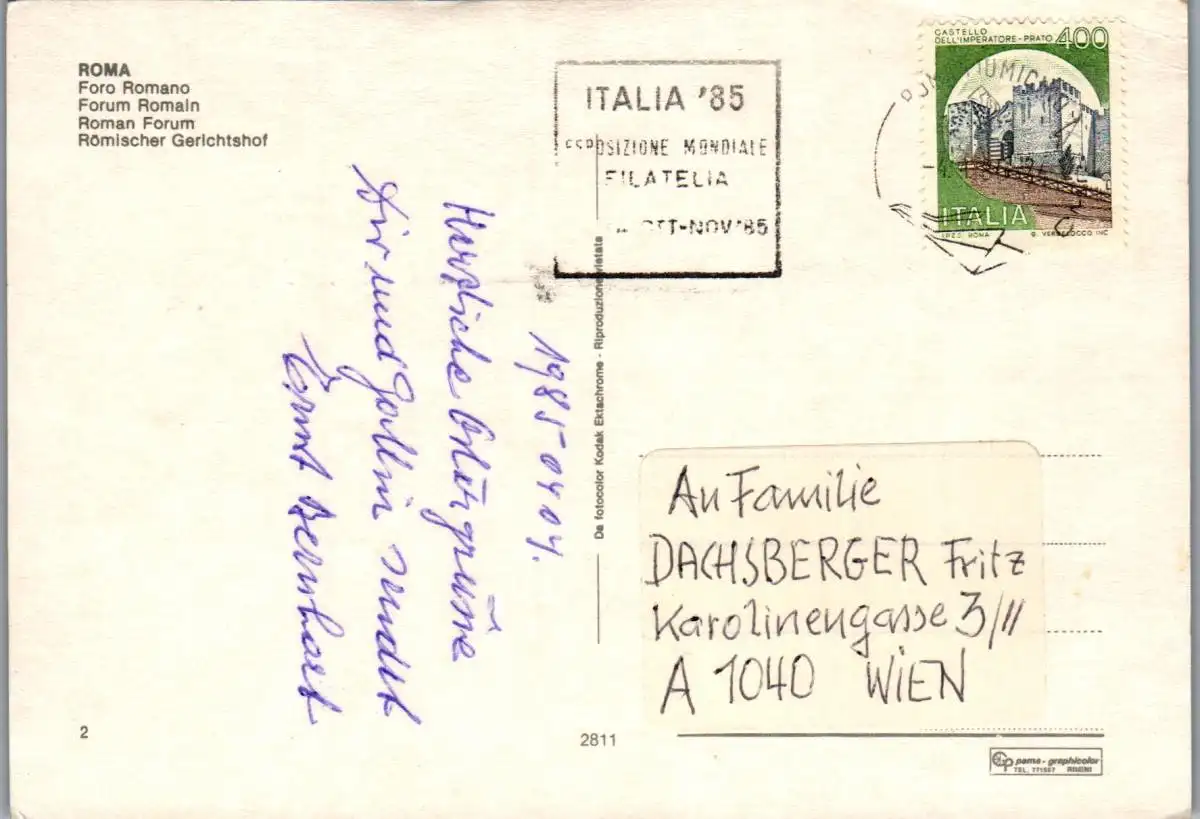 ROMA
Foro Romano
Forum Romain
Roman Forum
Römischer Gerichtshof
ITALIA '85
ESPOSIZIONE MONDIALE
FILATELIA
OTT-NOV '85
CASTELLO
DELL'IMPERATORE-PRATO 400
ITALIA
I.P.Z.S. ROMA
1985-04 04.
Herzliche Ostergrüße
Dir und Gattin sendet
Ernst Bernhart
Da fotocolor Kodak Ektachrome - Riproduzione vietata
An Familie
DACHSBERGER Fritz
Karolinengasse 3/11
A 1040 WIEN
2
2811
pama - graphicolor
TEL. 771597 RIMINI